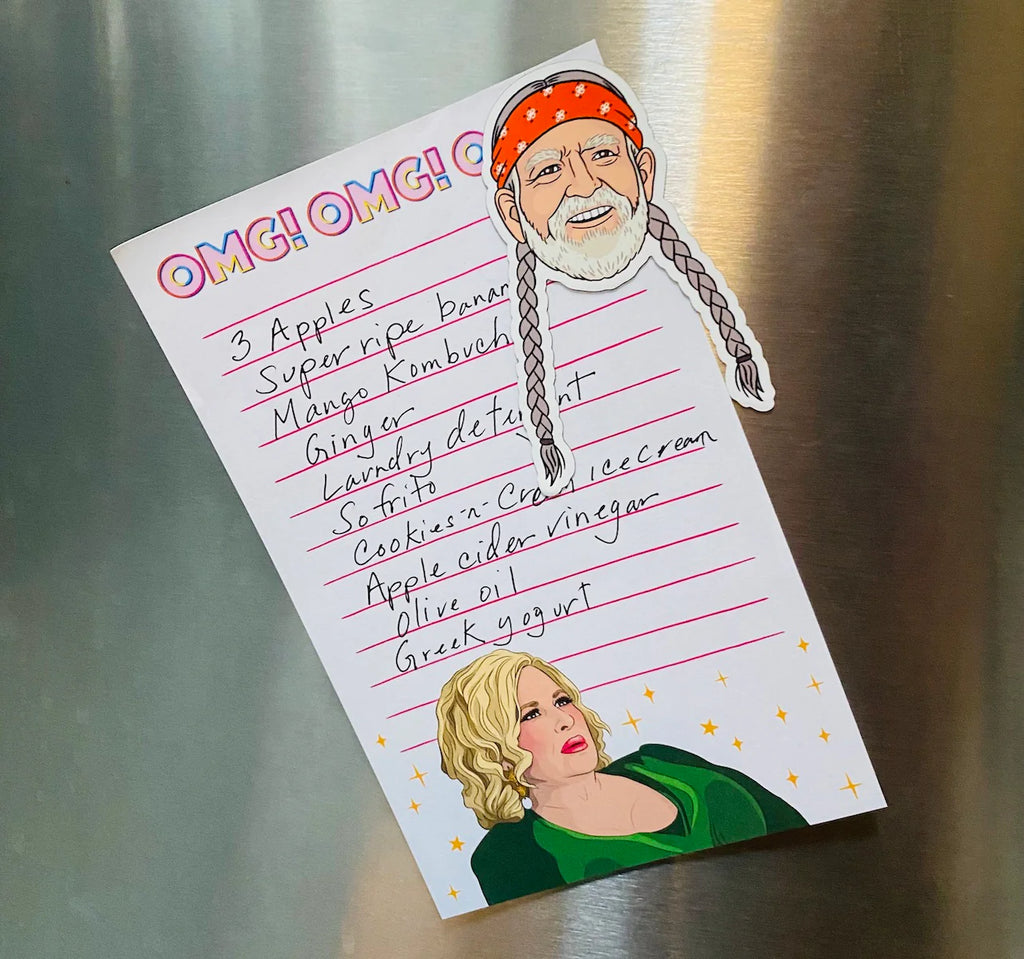 OMG! OMG! O
3 Apples
Super ripe banan
Mango Kombuch
Ginger
Laundry deter nt
Sofrito
Cookies-n-Cream ice cream
Apple cider vinegar
Olive oil
Greek yogurt